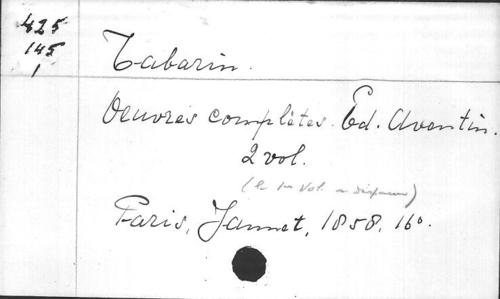 425
145
1
Tabarin.
Oeuvres complètes. Ed. Aventin.
2 vol.
(le 1er vol. a disparu)
Paris, Jannet, 1858, 16o.